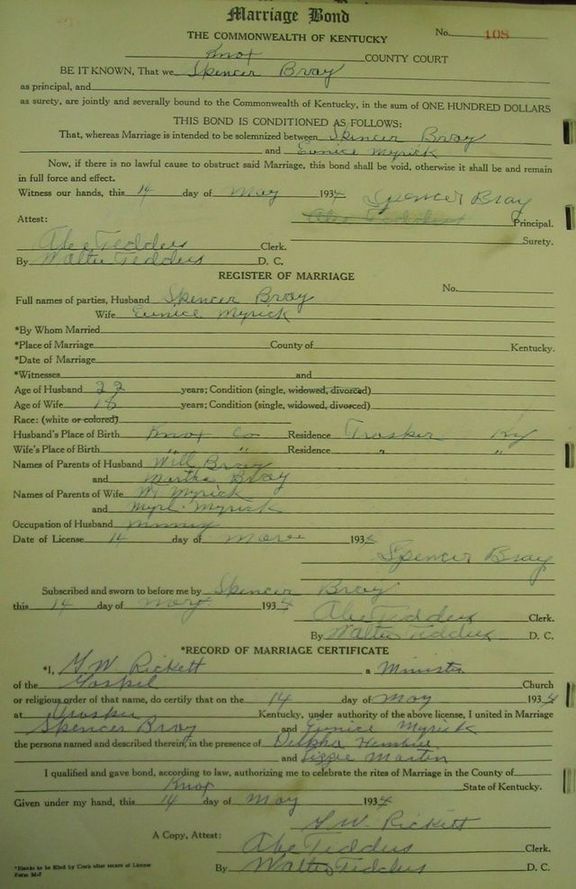 Marriage Bond
THE COMMONWEALTH OF KENTUCKY
No. 108
Knox COUNTY COURT
BE IT KNOWN, That we Spencer Bray
as principal, and
as surety, are jointly and severally bound to the Commonwealth of Kentucky, in the sum of ONE HUNDRED DOLLARS
THIS BOND IS CONDITIONED AS FOLLOWS:
That, whereas Marriage is intended to be solemnized between Spencer Bray
and Eunice Myrick
Now, if there is no lawful cause to obstruct said Marriage, this bond shall be void, otherwise it shall be and remain
in full force and effect.
Witness our hands, this 14 day of May 1934 Spencer Bray
Attest: Abe Tedders Principal.
Abe Tedders Clerk. Surety.
By Walter Tedders D. C.
REGISTER OF MARRIAGE
No.
Full names of parties, Husband Spencer Bray
Wife Eunice Myrick
*By Whom Married
*Place of Marriage County of Kentucky.
*Date of Marriage
*Witnesses and
Age of Husband 22 years; Condition (single, widowed, divorced)
Age of Wife 16 years; Condition (single, widowed, divorced)
Race: (white or colored)
Husband's Place of Birth Knox Co Residence Trosker Ky
Wife's Place of Birth " " Residence " "
Names of Parents of Husband Will Bray
and Martha Bray
Names of Parents of Wife Myrick
and Myrick
Occupation of Husband
Date of License 14 day of 1934
Spencer Bray
Subscribed and sworn to before me by Spencer Bray
this 14 day of May 1934
Abe Tedders Clerk.
By Walter Tedders D. C.
*RECORD OF MARRIAGE CERTIFICATE
*I, Rickett a Minister
of the Gospel Church
or religious order of that name, do certify that on the 14 day of May 1934
at Trosker Kentucky, under authority of the above license, I united in Marriage
Spencer Bray and Eunice Myrick
the persons named and described therein, in the presence of
and Lizzie Martin
I qualified and gave bond, according to law, authorizing me to celebrate the rites of Marriage in the County of
Knox State of Kentucky.
Given under my hand, this 14 day of May 1934
Rickett
A Copy, Attest:
Abe Tedders Clerk.
By Walter Tedders D. C.
*Blanks to be filled by Clerk after return of License